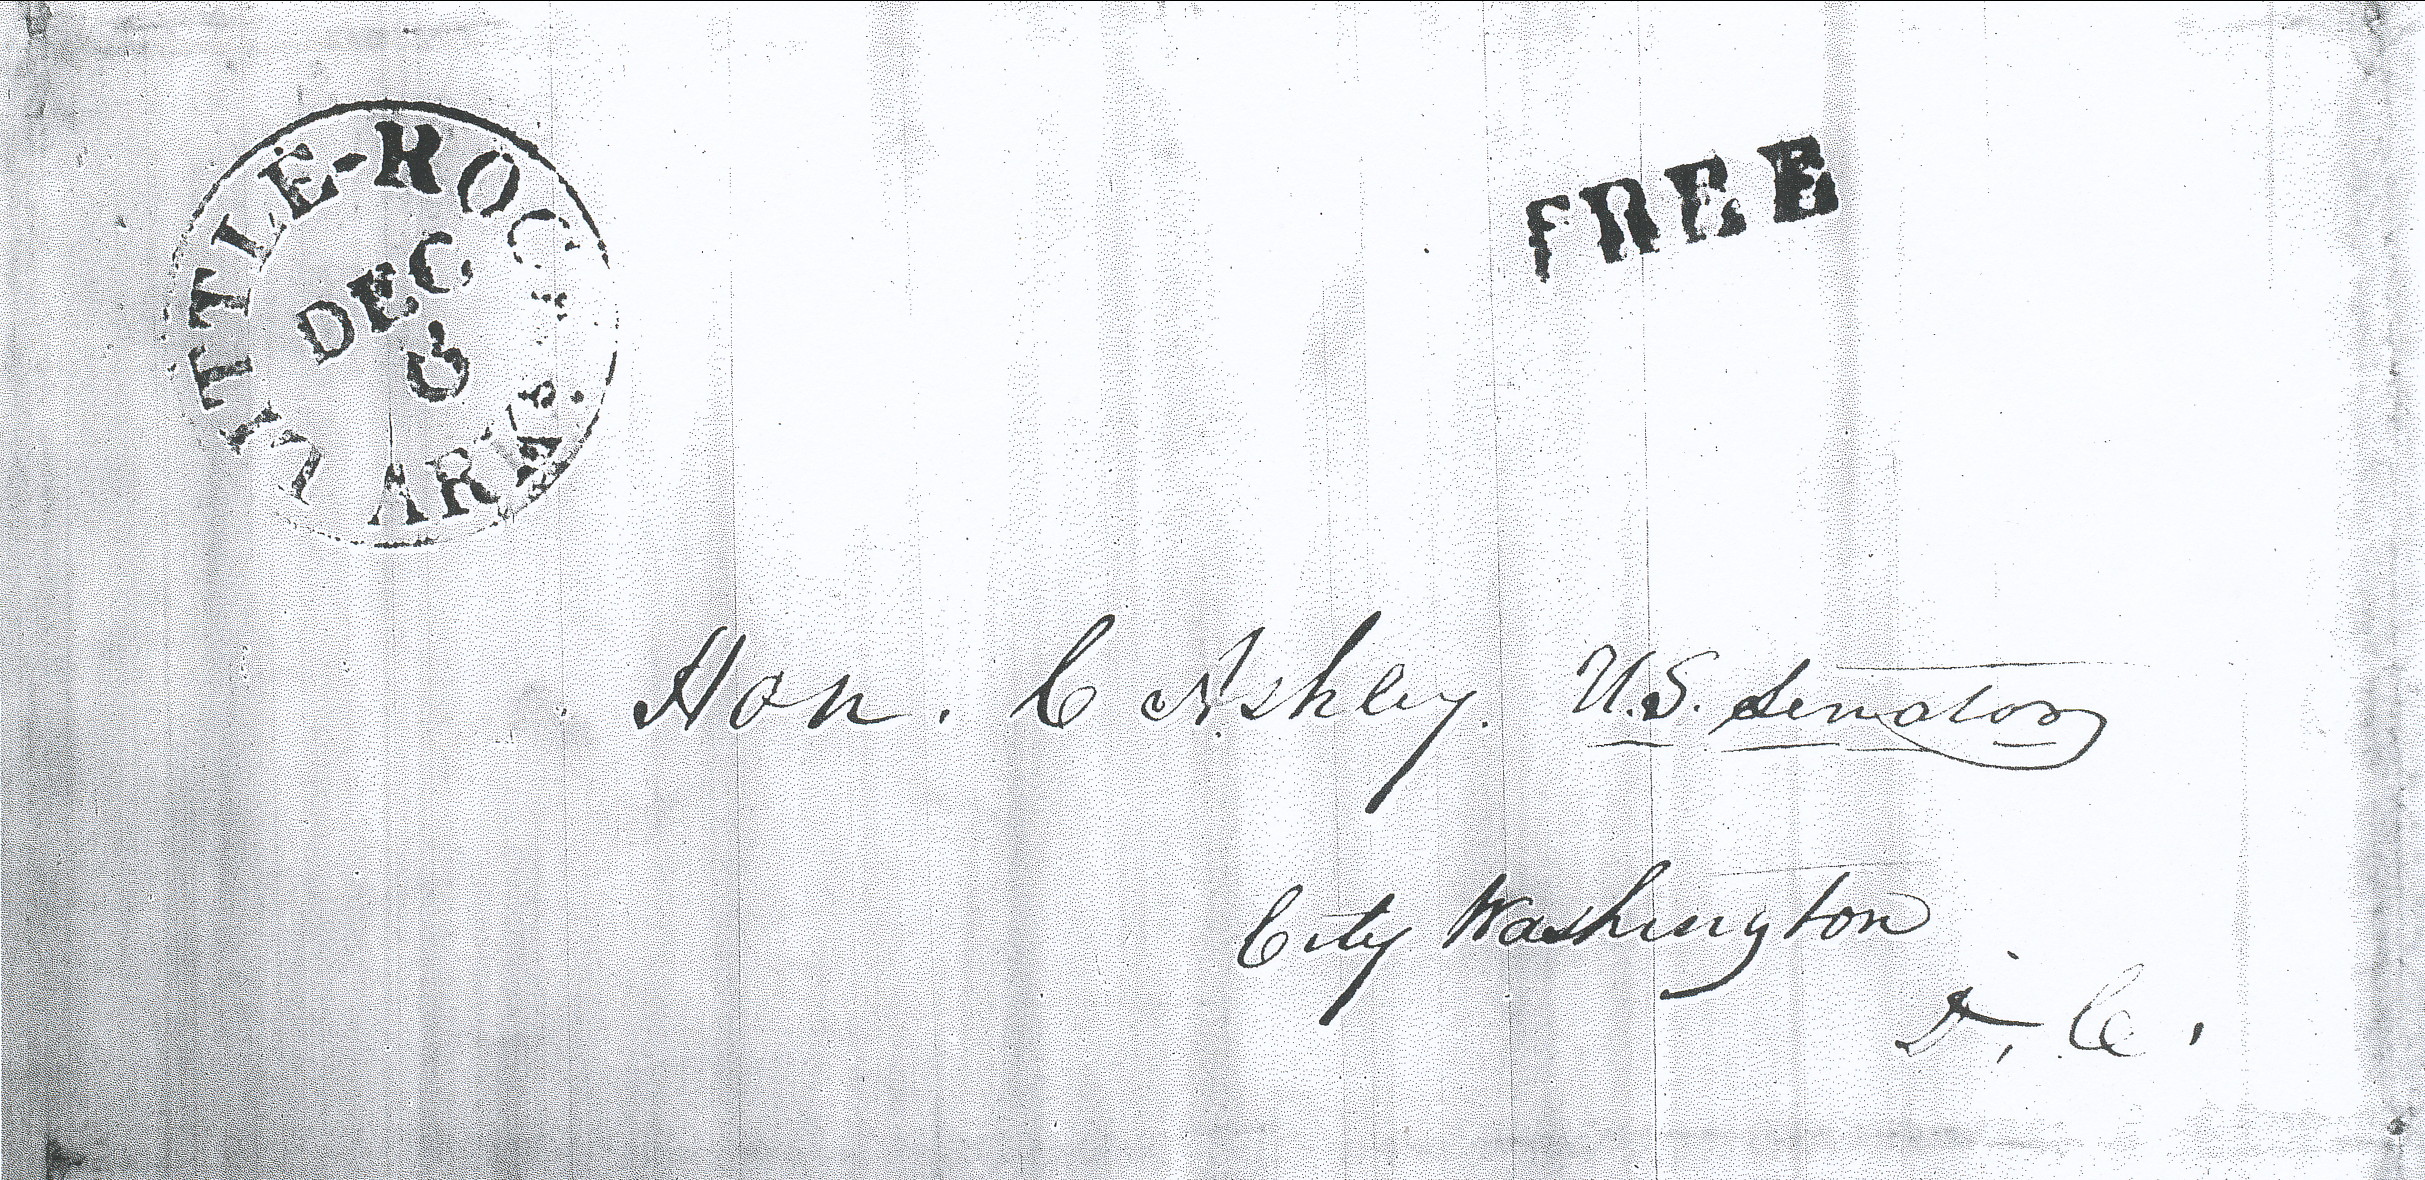 LITTLE-ROCK
DEC
ARKS.
FREE
Hon. C Ashley. U.S. Senator
City Washington
D. C.